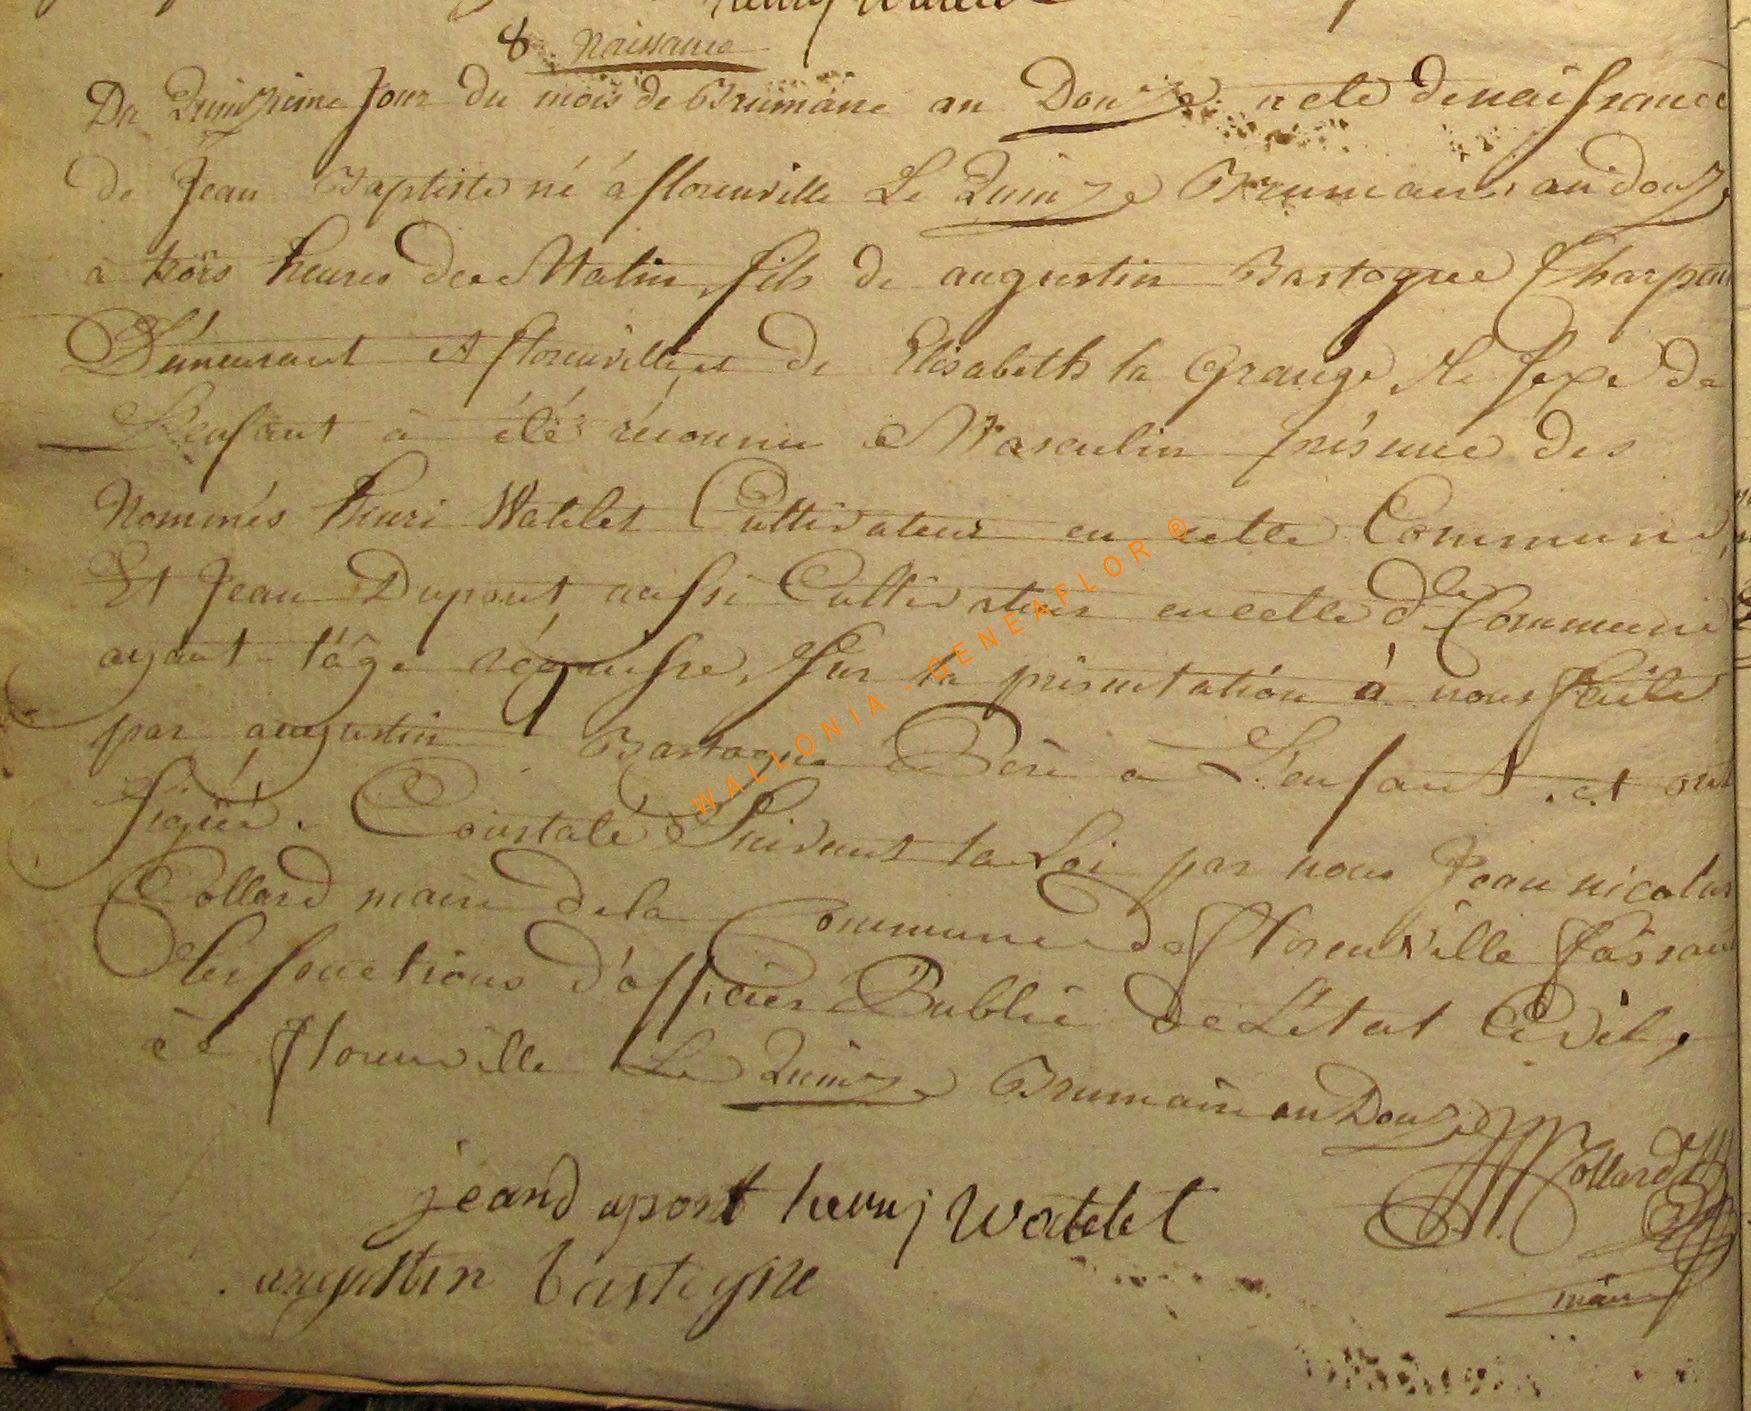 8 Naissance
Du Quinzieme Jour du mois de Brumaire an Douze acte de naissance
de Jean Baptiste né à florenville Le Quinze Brumaire an douze
à trois heures du Matin, fils de augustin Bastogne Charpen
Démeurant A florenville, et de Elisabeth la Grange, le sexe de
L'enfant à été réconnu Masculin présence des
Nommés henri Watelet Cultivateur en cette Commune,
Et Jean Dupont, aussi Cultivateur en cette d.te Commune
ayant l'âge réquisse, Sur la présentation à nous faite
par augustin Bastogne Père à L'enfant, et ont
signé. Constaté Suivant la Loi par nous Jean nicolas
Collard maire de la Commune de florenville faisant
les fonctions d'officier Public de L'état Civil,
à florenville Le Quinze Brumaire an Douze
JN Collard
jean dupont henry Watelet
augustin bastogne
maire
WALLONIA - GENEAFLOR ®